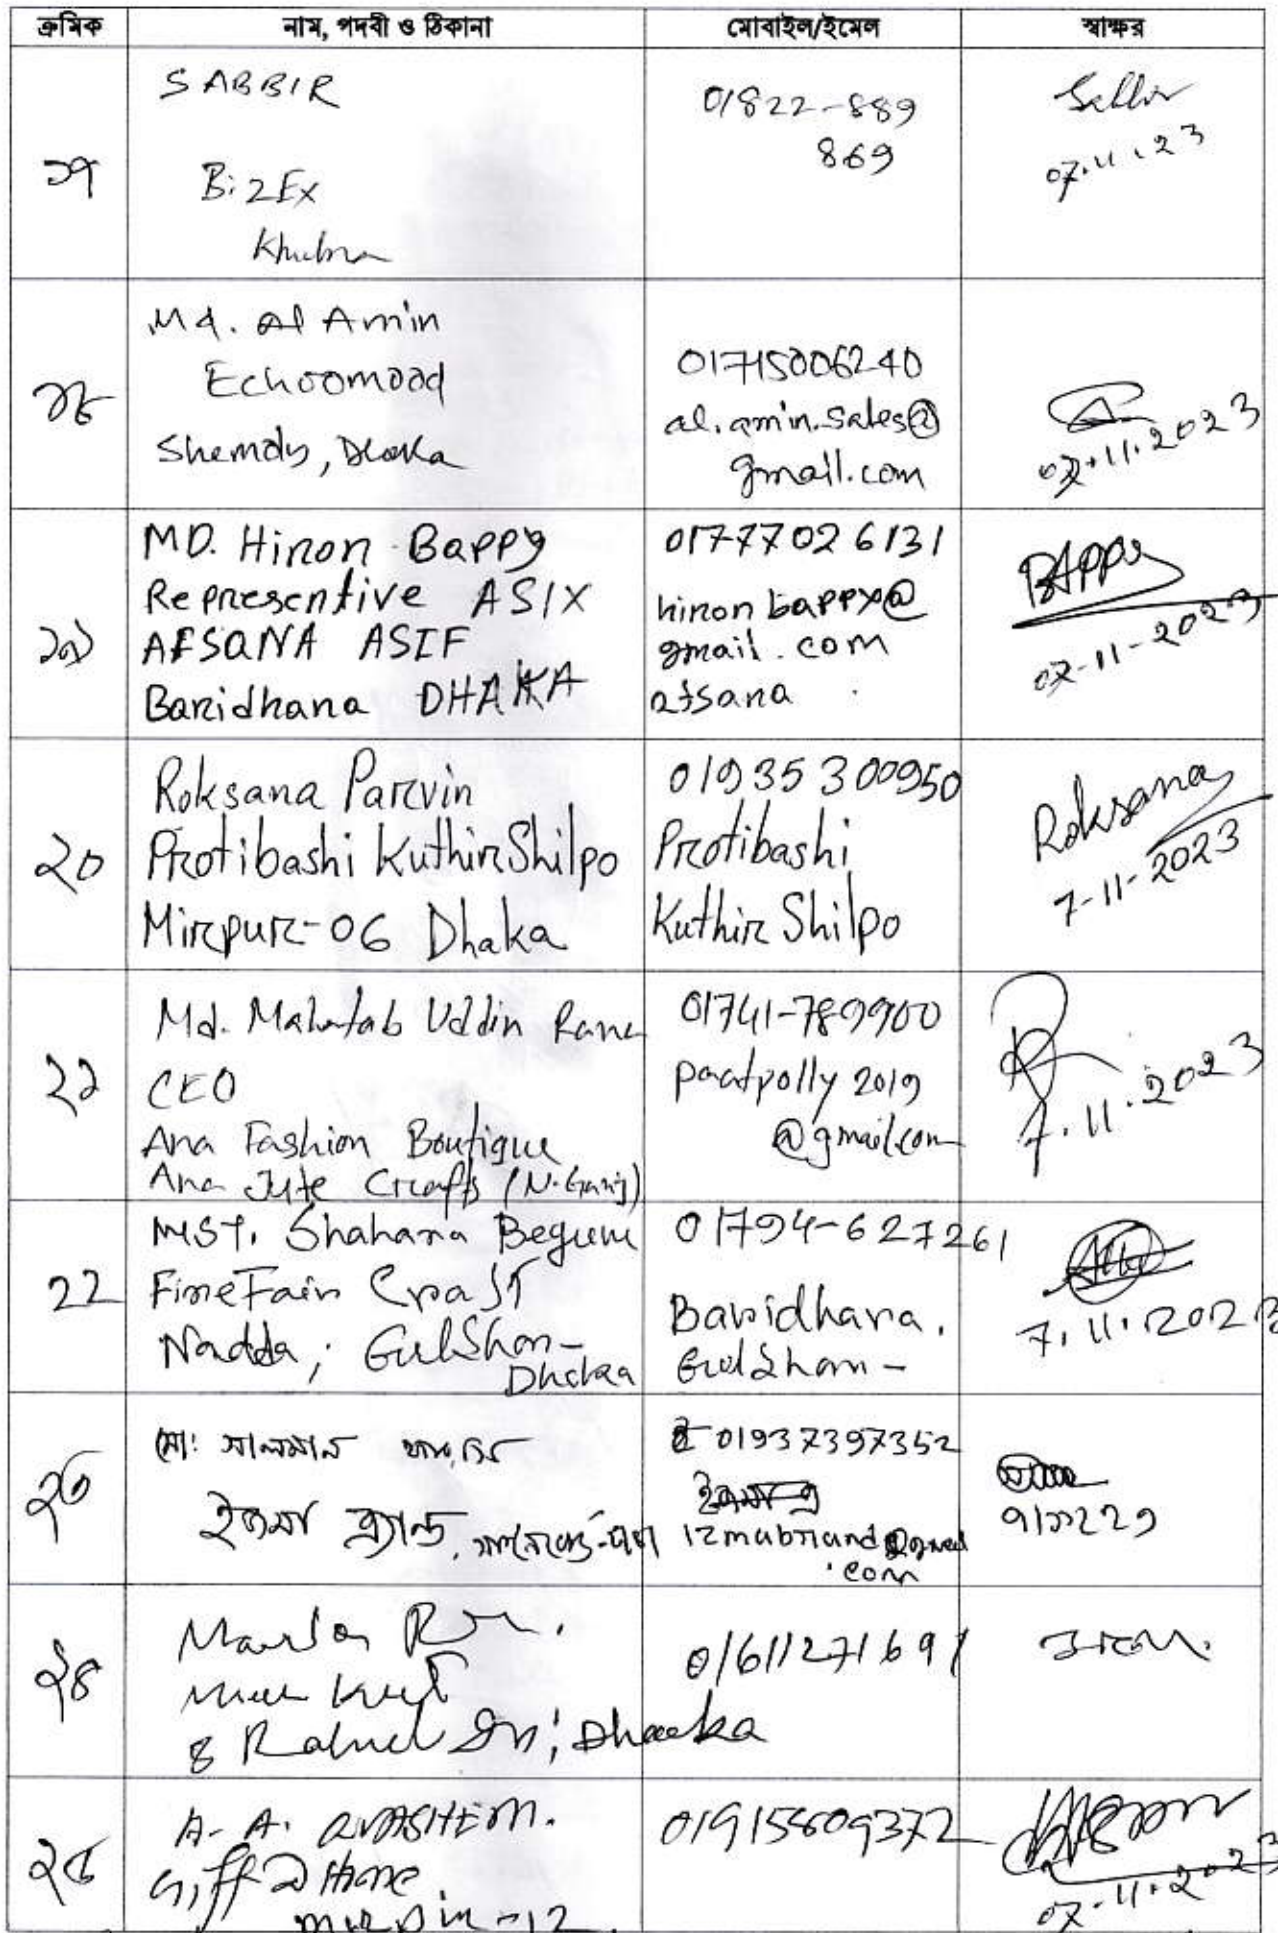 ক্রমিক নাম, পদবী ও ঠিকানা মোবাইল/ইমেল স্বাক্ষর
১৭
SABBIR
BizEx
Khulna
01822-889
869
07.11.23
১৮
Md. Al Amin
Echoomood
Dhaka
01715006240
al.amin.sales@
gmail.com
07.11.2023
১৯
MD. Hiron Bappy
Representive ASIX
AFSANA ASIF
Baridhana DHAKA
01777026131
hironbappy@
gmail.com
afsana
BAPPy
07-11-2023
২০
Roksana Parvin
Protibashi Kuthir Shilpo
Mirpur-06 Dhaka
01935300950
Protibashi
Kuthir Shilpo
Roksana
7-11-2023
২১
Md. Mahatab Uddin Rana
CEO
Ana Fashion Boutique
Ana Jute Crafts (N.Ganj)
01741-789900
paatpolly2019
@gmail.com
7.11.2023
২২
MST. Shahana Begum
Fine Fair Craft
Nadda, GulShan-
Dhaka
01794-627261
Baridhara,
GulShan-
7.11.2023
২৩
মো: সালমান
ইজমা ব্র্যান্ড,
01937397352
izmabrand@gmail
.com
২৪
Dhaka
01611271691
২৫
Mirpur-12
01915609372
07-11-2023